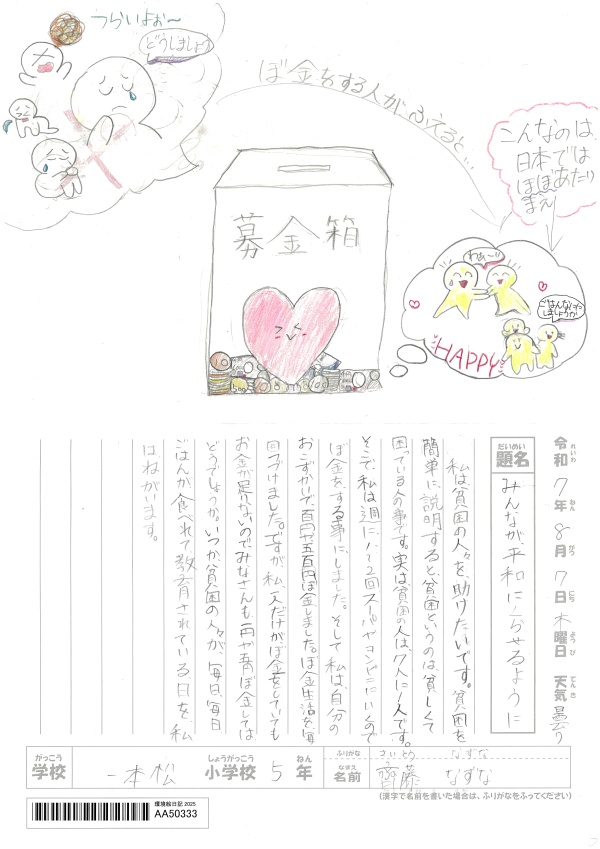 つらいよぉ〜
どうしましょう
ぼ金をする人がふえると…
こんなのは、
日本では
ほぼあたり
まえ
募金箱
わぁーい
ごはんなにに
しましょうか
HAPPY
10
500
100
令和7年8月7日木曜日 天気曇り
れいわ ねん がつ にち ようび てんき
だいめい
題名 みんなが平和にくらせるように
私は貧困の人々を、助けたいです。貧困を
簡単に説明すると貧困というのは、貧しくて
困っている人の事です。実は、貧困の人は、7人に1人です。
そこで、私は週に1、2回スーパーやコンビニにいくので
ぼ金をする事にしました。そして私は、自分の
おこずかいで、百円や五百円ぼ金しました。ぼ金生活を、毎
日つづけました。ですが、私、一人だけがぼ金をしていても
お金が足りないのでみなさんも一円や五円ぼ金しては
どうでしょうか。いつか、貧困の人々が、毎日、毎日
ごはんが食べれて教育されている日を、私
は、ねがいます。
がっこう しょうがっこう ねん ふりがな さいとう なずな
学校 一本松 小学校 5年 名前 齊藤 なずな
なまえ
(漢字で名前を書いた場合は、ふりがなをふってください)
環境絵日記 2025
AA50333